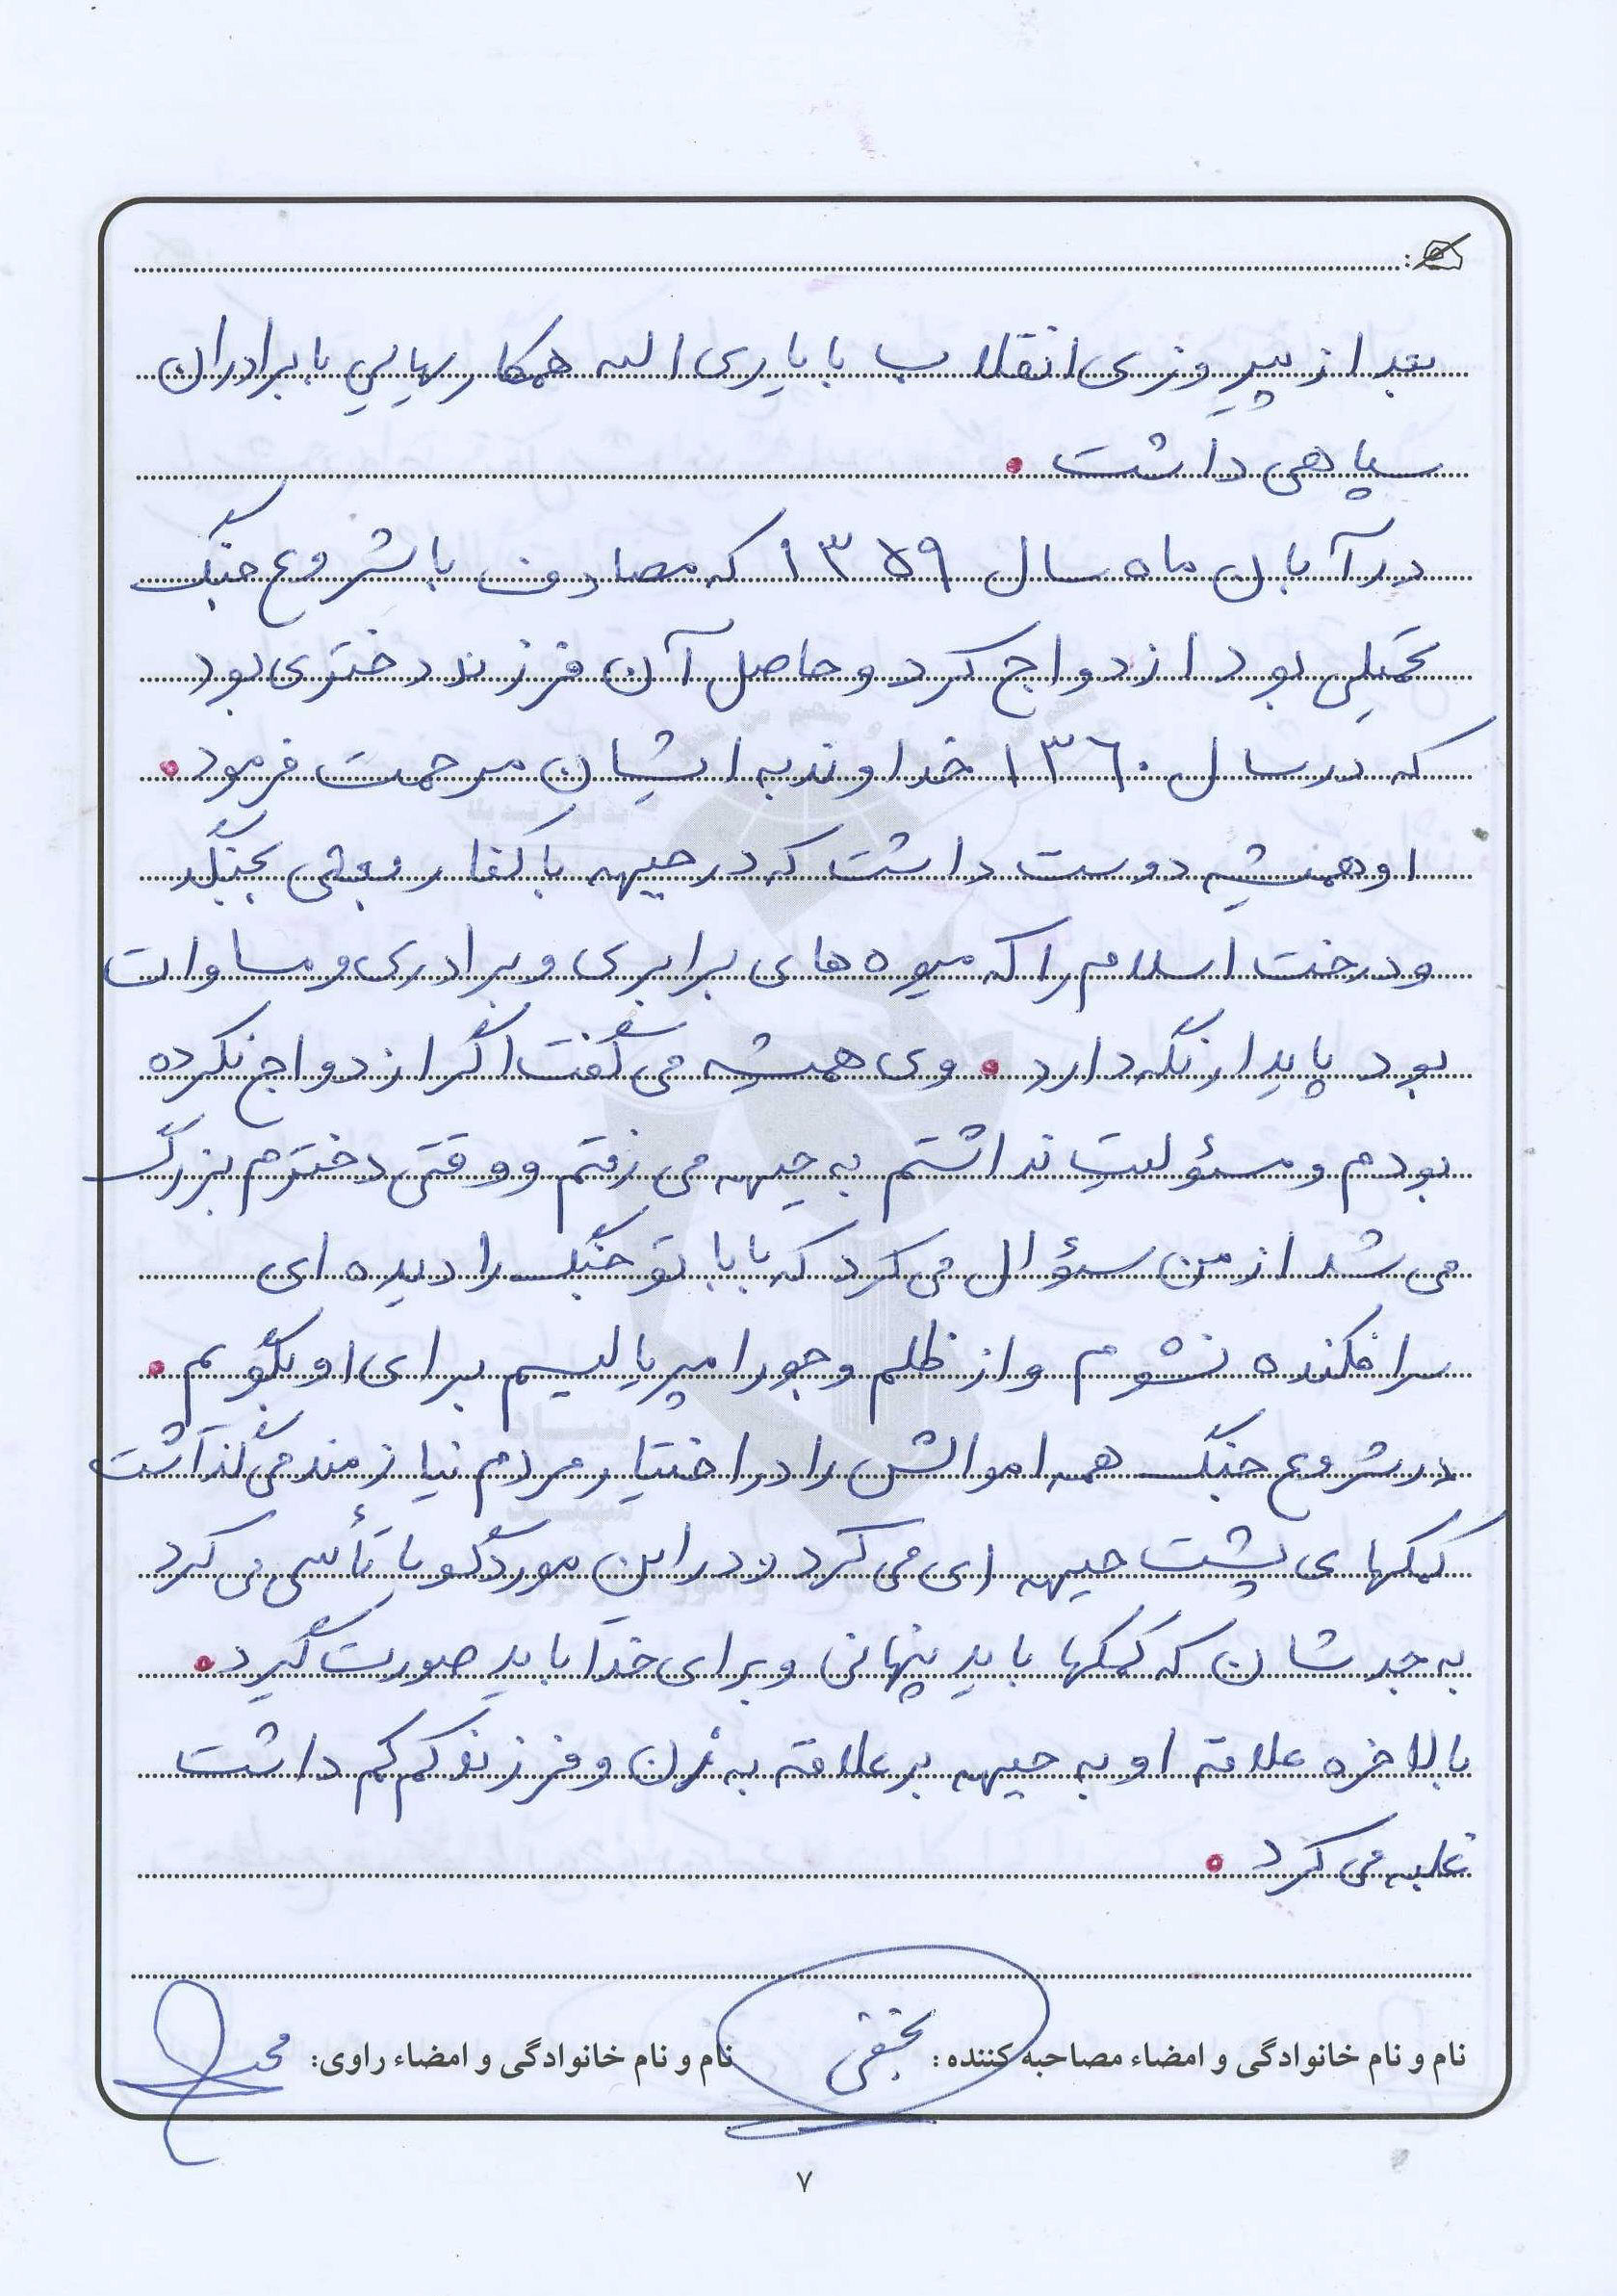 :
بعد از پیروزی انقلاب با یاری الله همکاریهایی با برادران
سپاهی داشت .
در آبان ماه سال ۱۳۵۹ که مصادف با شروع جنگ
تحمیلی بود ازدواج کرد و حاصل آن فرزند دختری بود
که در سال ۱۳۶۰ خداوند به ایشان مرحمت فرمود .
او همیشه دوست داشت که در جبهه با کفار بعثی بجنگد
و درخت اسلام را که میوه های برابری و برادری و مساوات
بود پایدار نگه دارد . وی همیشه می گفت اگر ازدواج نکرده
بودم و مسئولیت نداشتم به جبهه می رفتم و وقتی دخترم بزرگ
می شد از من سؤال می کرد که بابا تو جنگ را دیده ای
سرافکنده نشوم و از ظلم و جور امپریالیسم برای او بگویم .
در شروع جنگ همه اموالش را در اختیار مردم نیازمند می گذاشت
کمکهای پشت جبهه ای می کرد و در این مورد گویا تأسی می کرد
به جدشان که کمکها باید پنهانی و برای خدا باید صورت گیرد .
بالاخره علاقه او به جبهه بر علاقه به زن و فرزند که کم داشت
غلبه می کرد .
نام و نام خانوادگی و امضاء مصاحبه کننده : نام و نام خانوادگی و امضاء راوی:
۷